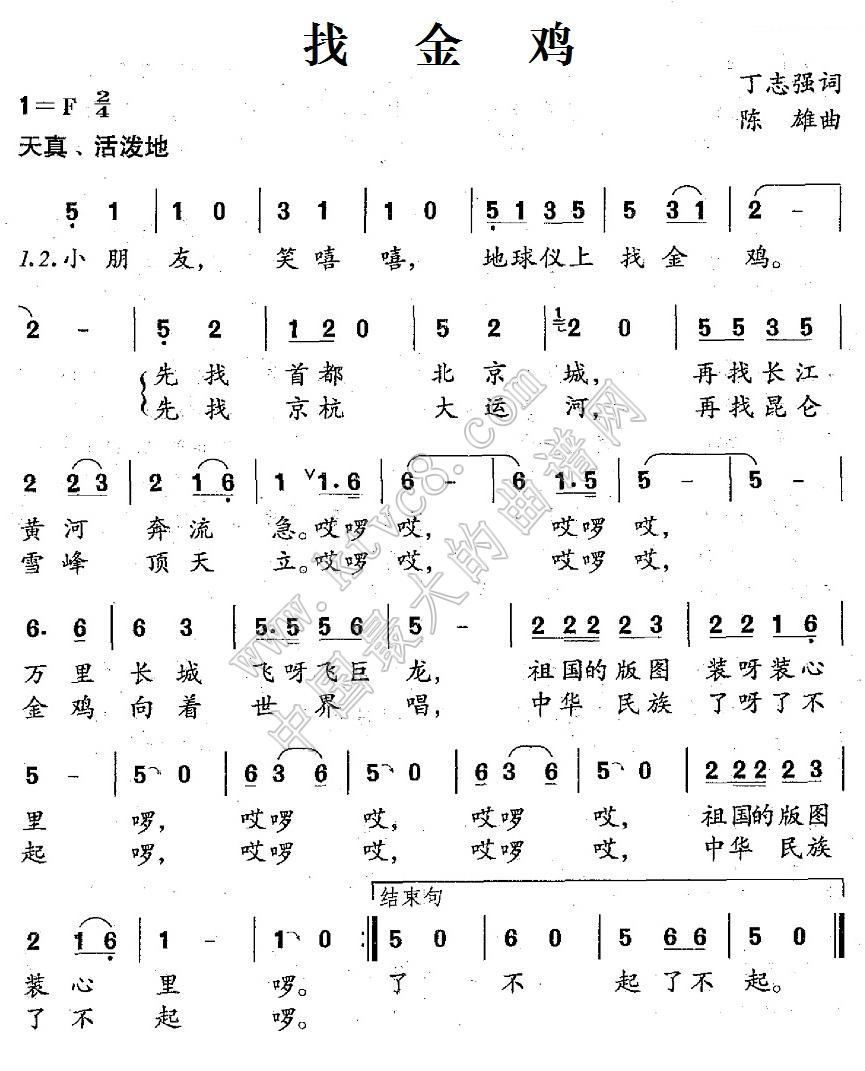 找 金 鸡
丁志强词
1=F 2/4
陈 雄曲
天真、活泼地
5 1 | 1 0 | 3 1 | 1 0 | 5 1 3 5 | 5 3 1 | 2 - |
1.2.小 朋 友, 笑 嘻 嘻, 地球仪上 找 金 鸡。
2 - | 5 2 | 1 2 0 | 5 2 | 1 2 0 | 5 5 3 5 |
先 找 首都 北 京 城, 再找长江
先 找 京杭 大 运 河, 再找昆仑
2 2 3 | 2 1 6 | 1 ∨ 1. 6 | 6 - | 6 1. 5 | 5 - | 5 - |
黄 河 奔 流 急。哎啰 哎, 哎啰 哎,
雪 峰 顶 天 立。哎啰 哎, 哎啰 哎,
6. 6 | 6 3 | 5. 5 5 6 | 5 - | 2 2 2 2 2 3 | 2 2 1 6 |
万 里 长 城 飞呀飞巨 龙, 祖国的版图 装呀装心
金 鸡 向 着 世 界 唱, 中华 民族 了呀了不
5 - | 5 0 | 6 3 6 | 5 0 | 6 3 6 | 5 0 | 2 2 2 2 2 3 |
里 啰, 哎啰 哎, 哎啰 哎, 祖国的版图
起 啰, 哎啰 哎, 哎啰 哎, 中华 民族
结束句
2 1 6 | 1 - | 1 0 :‖ 5 0 | 6 0 | 5 6 6 | 5 0 ‖
装 心 里 啰。 了 不 起了不 起。
了 不 起 啰。
www.ktvc8.com
中国最大的曲谱网